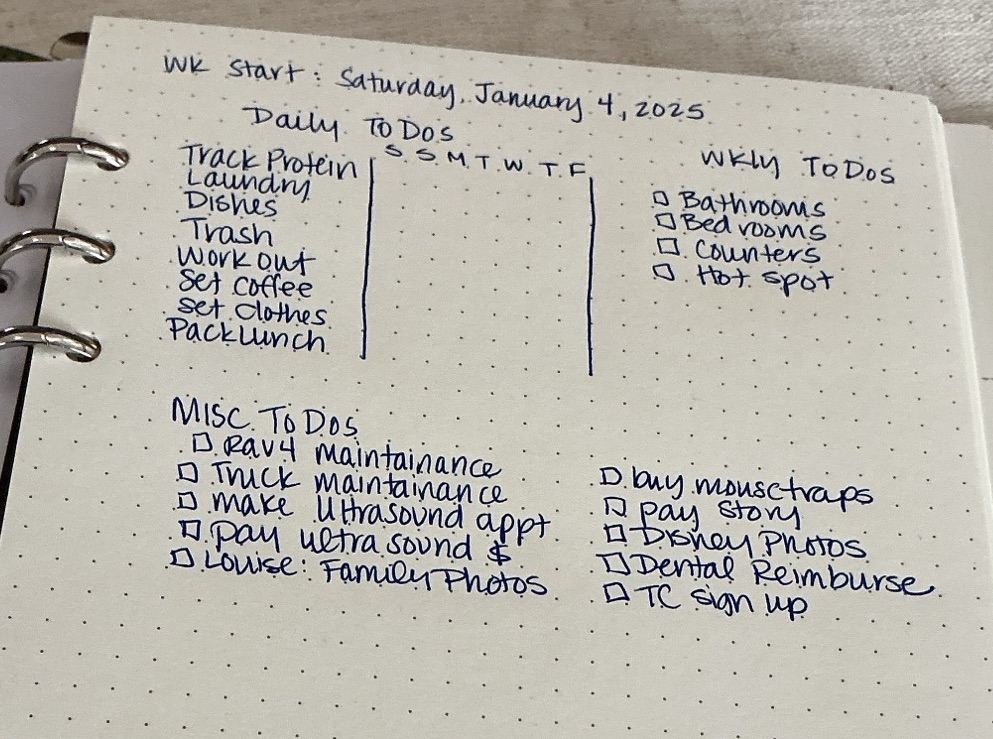 WK Start: Saturday, January 4, 2025
Daily To Dos
S S M T W T F
Track Protein
Laundry
Dishes
Trash
Work out
Set coffee
Set clothes
Pack Lunch
WKly To Dos
Bathrooms
Bedrooms
Counters
Hot spot
Misc To Dos
Rav4 maintainance
Truck maintainance
make Ultrasound appt
pay ultrasound $
Louise: Family Photos
buy mousetraps
pay Story
Disney Photos
Dental Reimburse
TC sign up